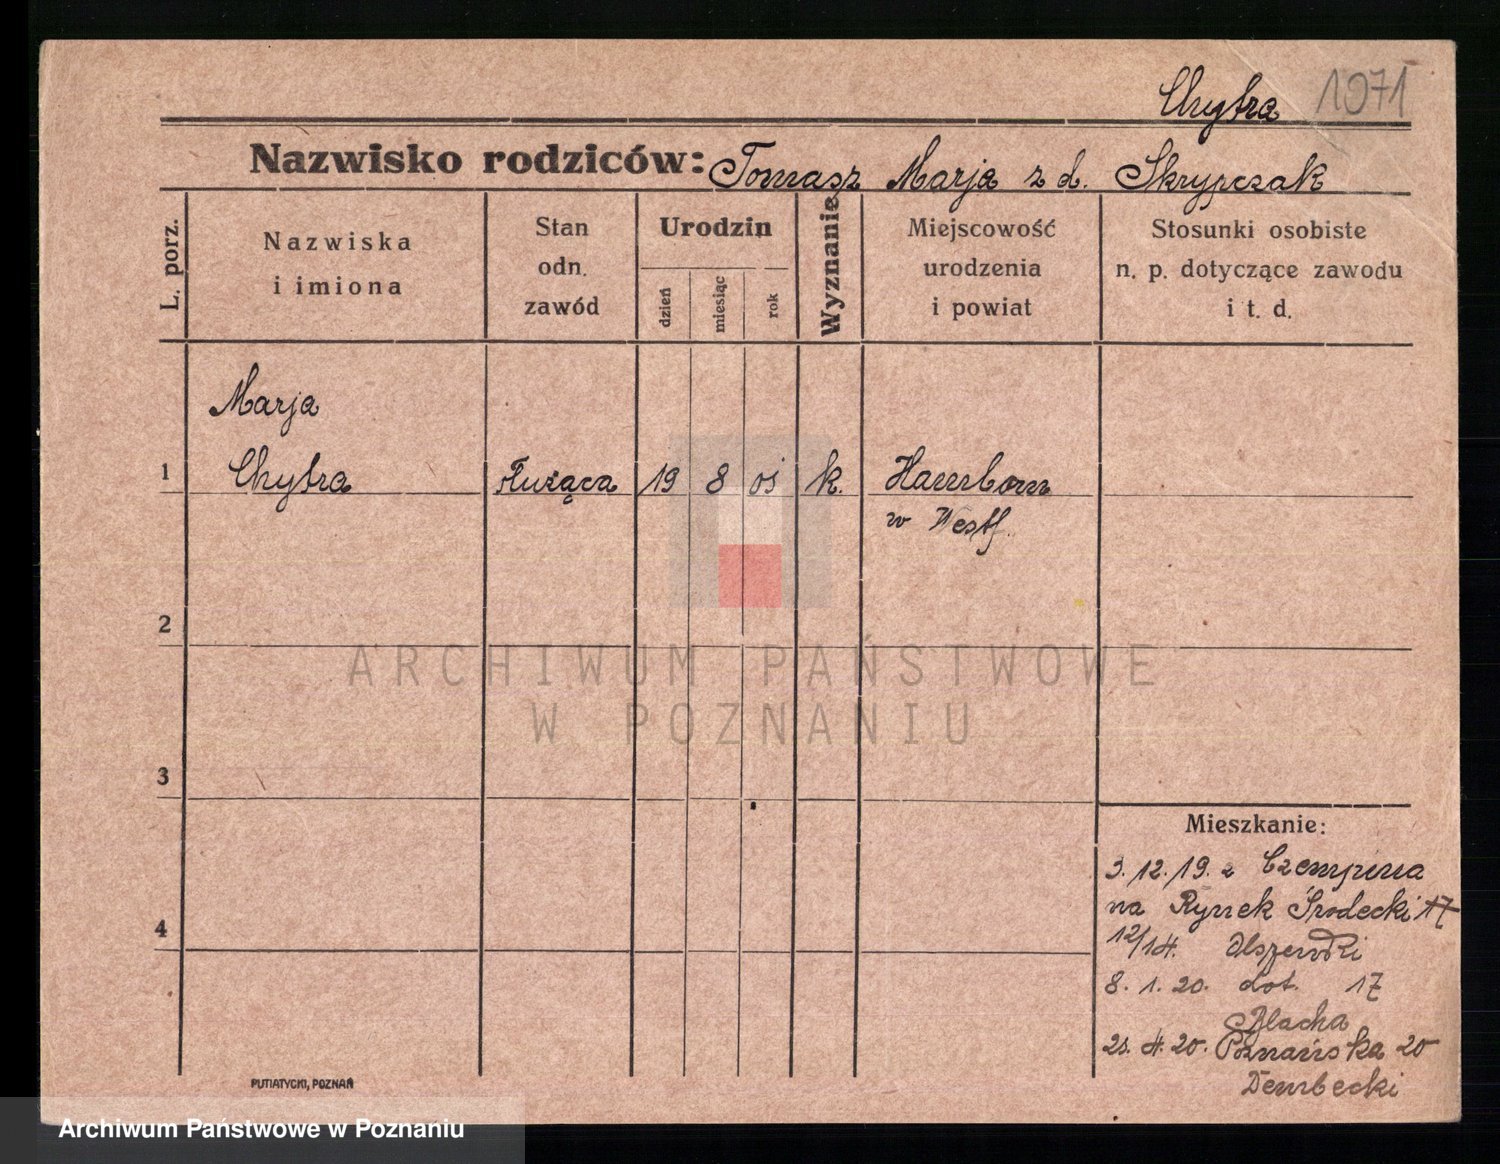 Chytra 1071
Nazwisko rodziców: Tomasz Marja z d. Skrypczak
L. porz.
Nazwiska
i imiona
Stan
odn.
zawód
Urodzin
dzień
miesiąc
rok
Wyznanie
Miejscowość
urodzenia
i powiat
Stosunki osobiste
n. p. dotyczące zawodu
i t. d.
Marja
1 Chytra służąca 19 8 k. Hamborn
w Westf.
2
3
4
Mieszkanie:
3.12.19. z Czempina
na Rynek Środecki 17
12/14. Olszewski
8.1.20. dot. 17
Blacha
4.20. Poznańska 20
Dembecki
PUTIATYCKI, POZNAŃ
ARCHIWUM PAŃSTWOWE
W POZNANIU
Archiwum Państwowe w Poznaniu